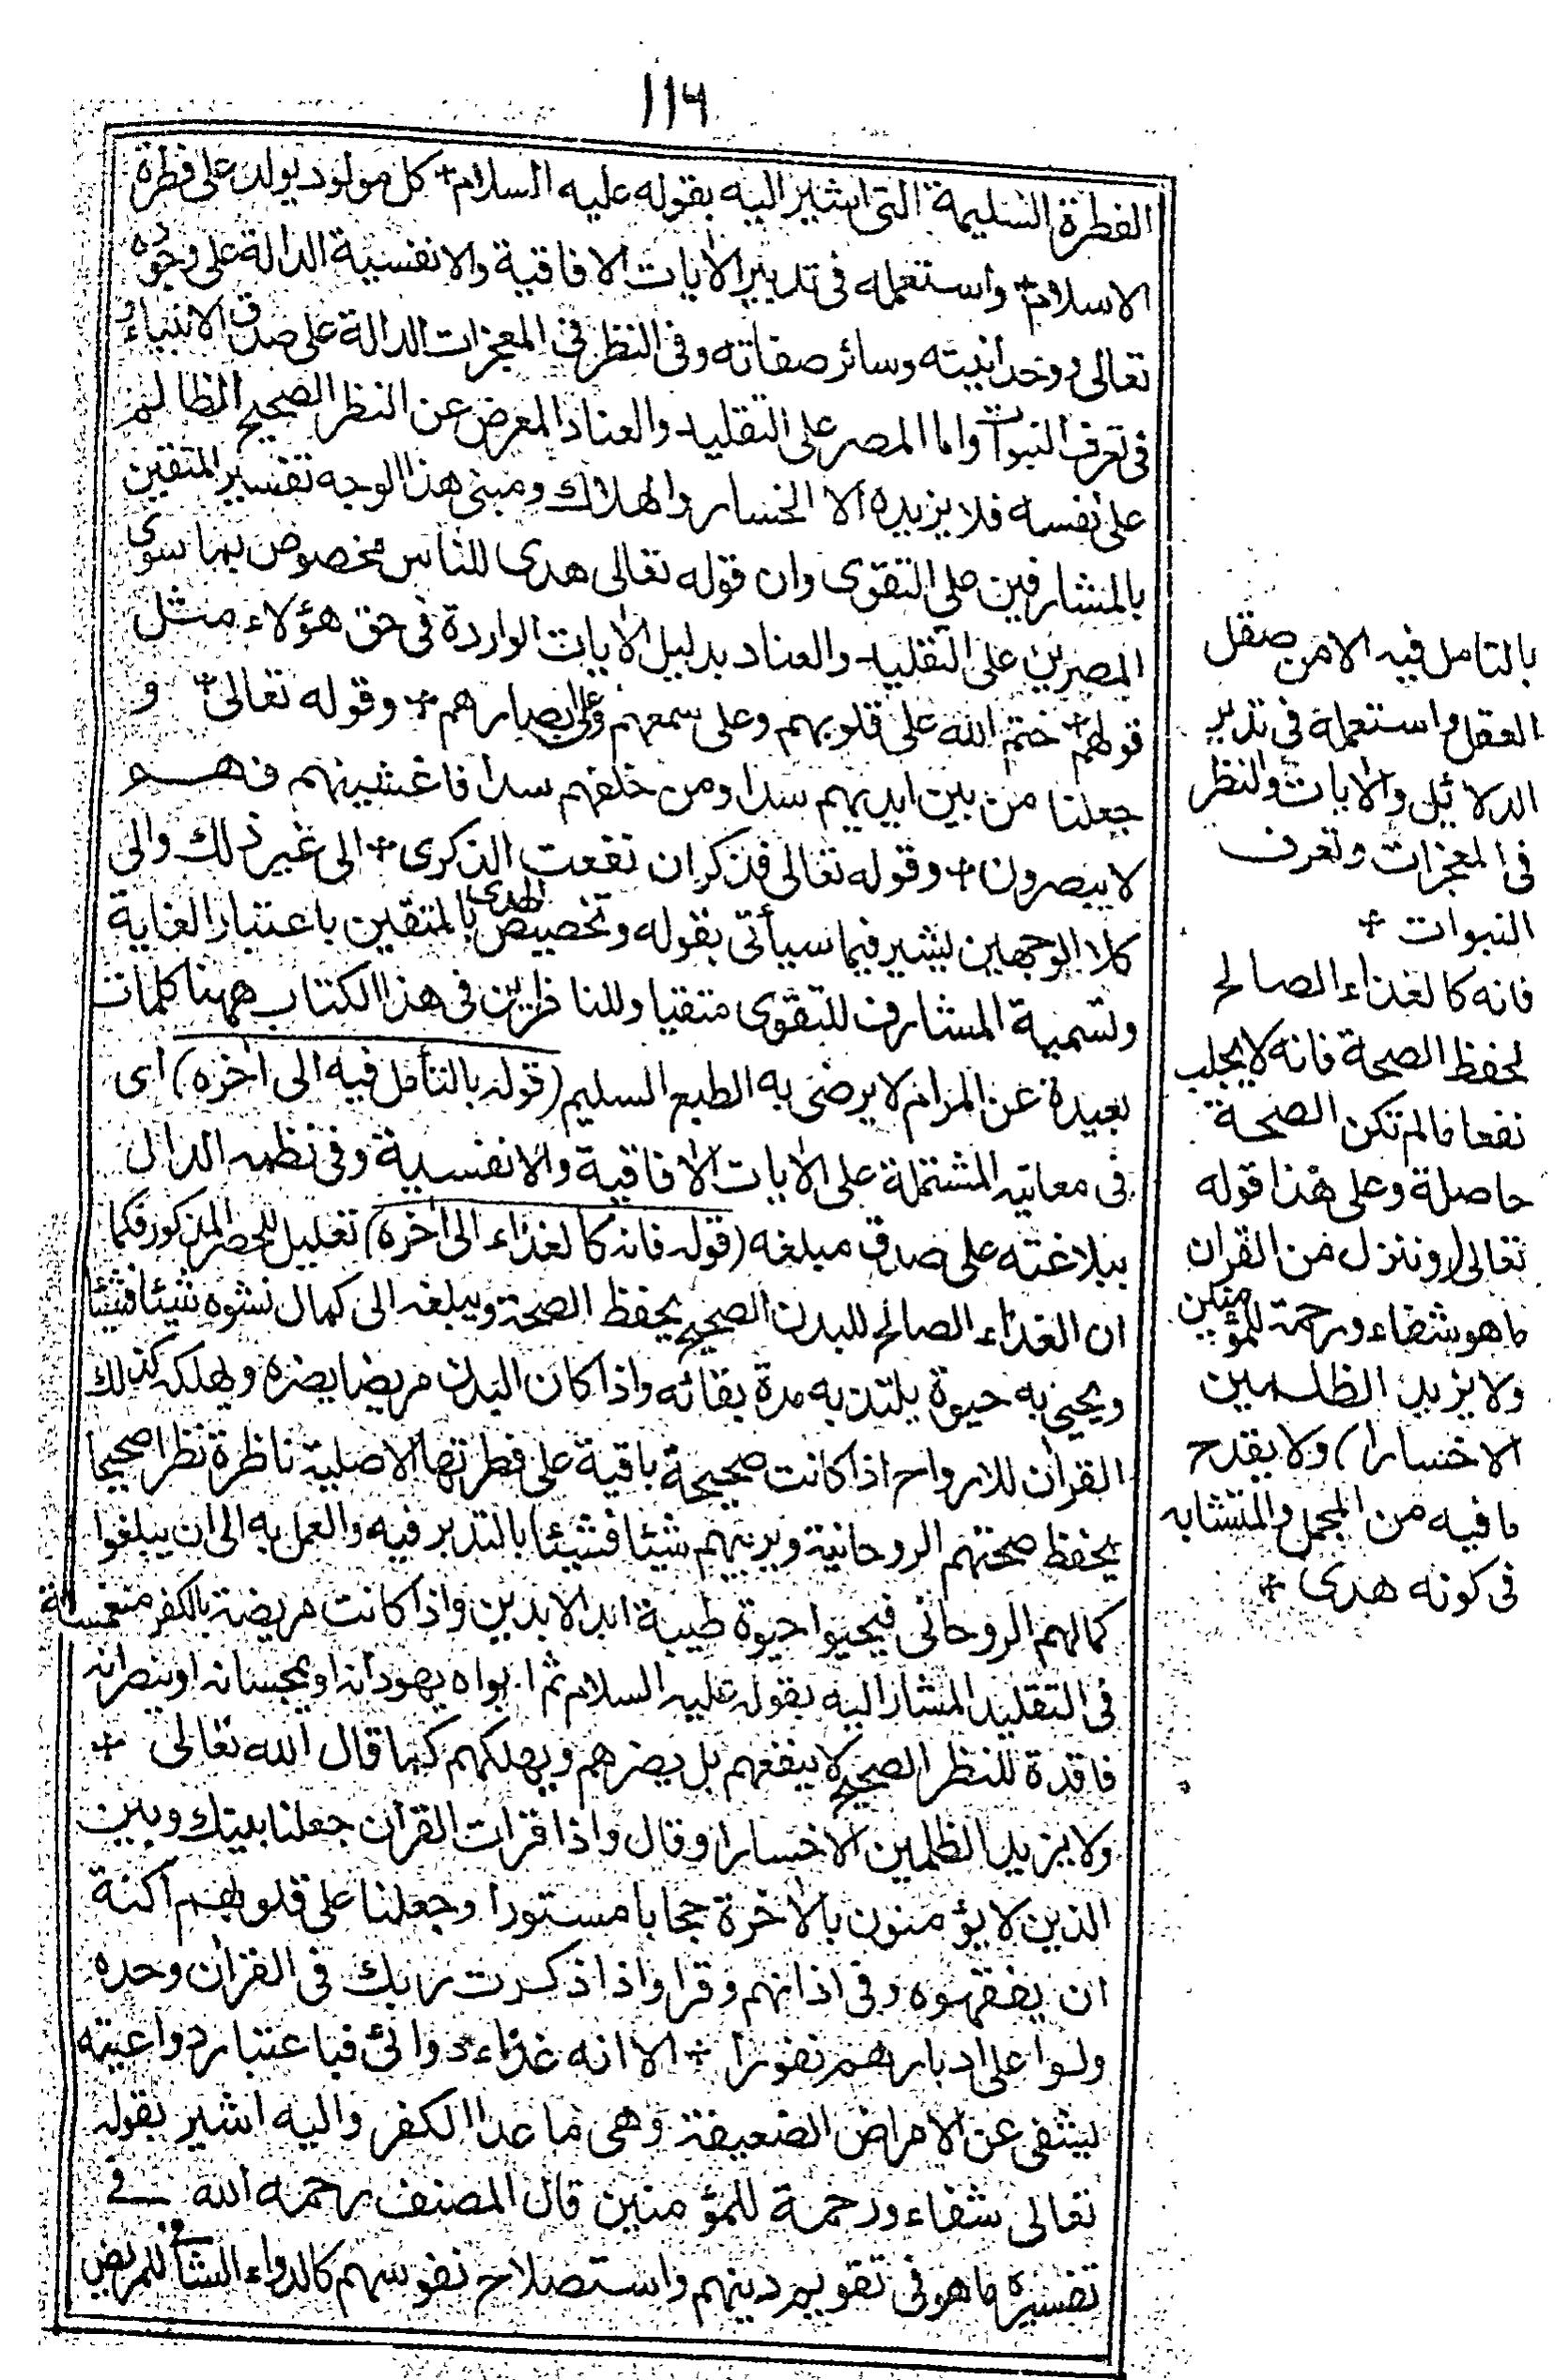 ١١٦
الفطرة السليمة التى اشير اليه بقوله عليه السلام + كل مولود يولد على فطرة
الاسلام + واستعمله فى تدبير الاٰيات الافاقية والانفسية الدالة على وجوده
تعالى ووحدانيته وسائر صفاته وفى النظر فى المعجزات الدالة على صدق الانبياء و
فى تعرف النبوات واما المصر على التقليد والعناد المعرض عن النظر الصحيح الظالم
على نفسه فلا يزيده الا الخسار والهلاك ومبنى هذا الوجه تفسير المتقين
بالمشارفين على التقوى وان قوله تعالى هدى للناس مخصوص بها سوى
المصرين على التقليد والعناد بدليل الاٰيات الواردة فى حق هؤلاء مثل
قولهم + ختم الله على قلوبهم وعلى سمعهم وعلى ابصارهم + وقوله تعالى + و
جعلنا من بين ايديهم سدا ومن خلفهم سدا فاغشينهم فهم
لا يبصرون + وقوله تعالى فذكر ان نفعت الذكرى + الى غير ذلك والى
كلا الوجهين يشير فيما سيأتى بقوله وتخصيص الهدى بالمتقين باعتبار الغاية
وتسمية المشارف للتقوى متقيا وللناظرين فى هذا الكتاب ههنا كلمات
بعيدة عن المرام لا يرضى به الطبع السليم (قوله بالتأمل فيه الى اٰخره) اى
فى معانيه المشتملة على الاٰيات الافاقية والانفسية وفى نظمه الدال
ببلاغته على صدق مبلغه (قوله فانه كالغذاء الى اٰخره) تعليل للحصر المذكور فكما
ان الغذاء الصالح للبدن الصحيح يحفظ الصحة ويبلغه الى كمال نشوه شيئا فشيئا
ويحيى به حيوة يلتذ به مدة بقائه واذا كان البدن مريضا يضره ويهلكه كذلك
القراٰن للارواح اذا كانت صحيحة باقية على فطرتها الاصلية ناظرة نظرا صحيحا
يحفظ صحتهم الروحانية ويربيهم شيئا فشيئا بالتدبر فيه والعمل به الى ان يبلغوا
كمالهم الروحانى فيحيوا حيوة طيبة ابد الابدين واذا كانت مريضة بالكفر منغمسة
فى التقليد المشار اليه بقوله عليه السلام ثم ابواه يهودانه او يمجسانه او ينصرانه
فاقدة للنظر الصحيح لا ينفعهم بل يضرهم ويهلكهم كما قال الله تعالى +
ولا يزيد الظلمين الا خسارا وقال واذا قرات القراٰن جعلنا بينك وبين
الذين لا يؤمنون بالاٰخرة حجابا مستورا وجعلنا على قلوبهم اكنة
ان يفقهوه وفى اذانهم وقرا واذا ذكرت ربك فى القراٰن وحده
ولوا على ادبارهم نفورا + الا انه غذاء دوائى فباعتبار دوائيته
يشفى عن الامراض الضعيفة وهى ما عدا الكفر واليه اشير بقوله
تعالى شفاء ورحمة للمؤمنين قال المصنف رحمه الله فى
تفسيره ما هو فى تقويم دينهم واستصلاح نفوسهم كالدواء الشافى للمريض
بالتامل فيه الا من صقل
العقل واستعمله فى تدبر
الدلائل والاٰيات والنظر
فى المعجزات وتعرف
النبوات +
فانه كالغذاء الصالح
لحفظ الصحة فانه لا يجلب
نفعا مالم تكن الصحة
حاصلة وعلى هذا قوله
تعالى (وننزل من القراٰن
ما هو شفاء ورحمة للمؤمنين
ولا يزيد الظلمين
الا خسارا) ولا يقدح
ما فيه من المجمل والمتشابه
فى كونه هدى +